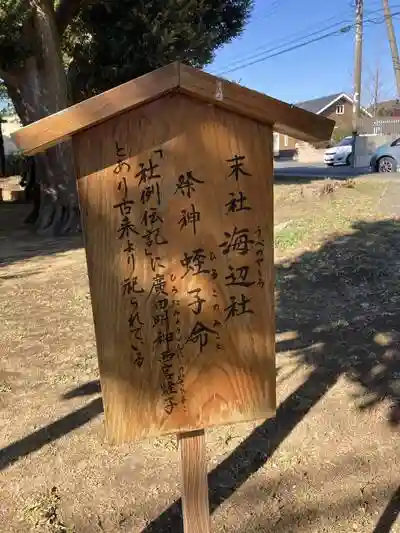 末社 海辺社
うべのやしろ
祭神 蛭子命
ひるこのみこと
「社例伝記」に廣田明神西宮蛭子
とあり古来より祀られている